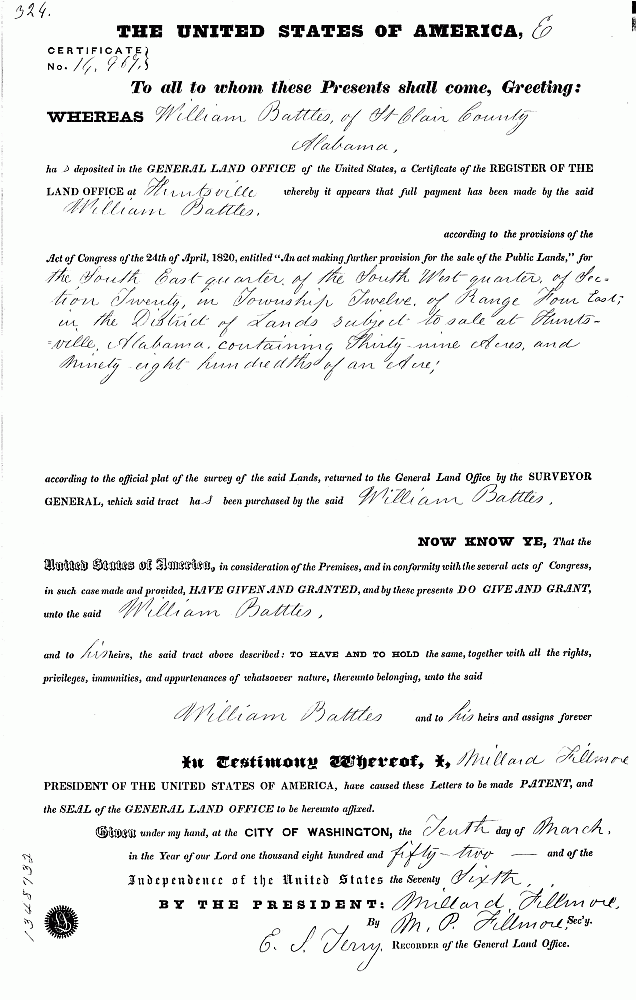 324.
THE UNITED STATES OF AMERICA, E
CERTIFICATE
No. 14,969.
To all to whom these Presents shall come, Greeting:
WHEREAS William Battles, of St Clair County
Alabama,
ha s deposited in the GENERAL LAND OFFICE of the United States, a Certificate of the REGISTER OF THE
LAND OFFICE at Huntsville whereby it appears that full payment has been made by the said
William Battles.
according to the provisions of the
Act of Congress of the 24th of April, 1820, entitled "An act making further provision for the sale of the Public Lands," for
the South East quarter, of the South West quarter, of Sec-
tion Twenty, in Township Twelve, of Range Four East;
in the District of Lands subject to sale at Hunts-
-ville, Alabama, containing Thirty-nine Acres, and
Ninety-eight hundredths of an Acre;
according to the official plat of the survey of the said Lands, returned to the General Land Office by the SURVEYOR
GENERAL, which said tract ha s been purchased by the said William Battles.
NOW KNOW YE, That the
United States of America, in consideration of the Premises, and in conformity with the several acts of Congress,
in such case made and provided, HAVE GIVEN AND GRANTED, and by these presents DO GIVE AND GRANT,
unto the said William Battles,
and to his heirs, the said tract above described: TO HAVE AND TO HOLD the same, together with all the rights,
privileges, immunities, and appurtenances of whatsoever nature, thereunto belonging, unto the said
William Battles and to his heirs and assigns forever
In Testimony Whereof, I, Millard Fillmore
PRESIDENT OF THE UNITED STATES OF AMERICA, have caused these Letters to be made PATENT, and
the SEAL of the GENERAL LAND OFFICE to be hereunto affixed.
Given under my hand, at the CITY OF WASHINGTON, the Tenth day of March,
in the Year of our Lord one thousand eight hundred and fifty-two — and of the
Independence of the United States the Seventy Sixth,
BY THE PRESIDENT: Millard Fillmore,
By M. P. Fillmore, Sec'y.
E. S. Terry, RECORDER of the General Land Office.
1345732